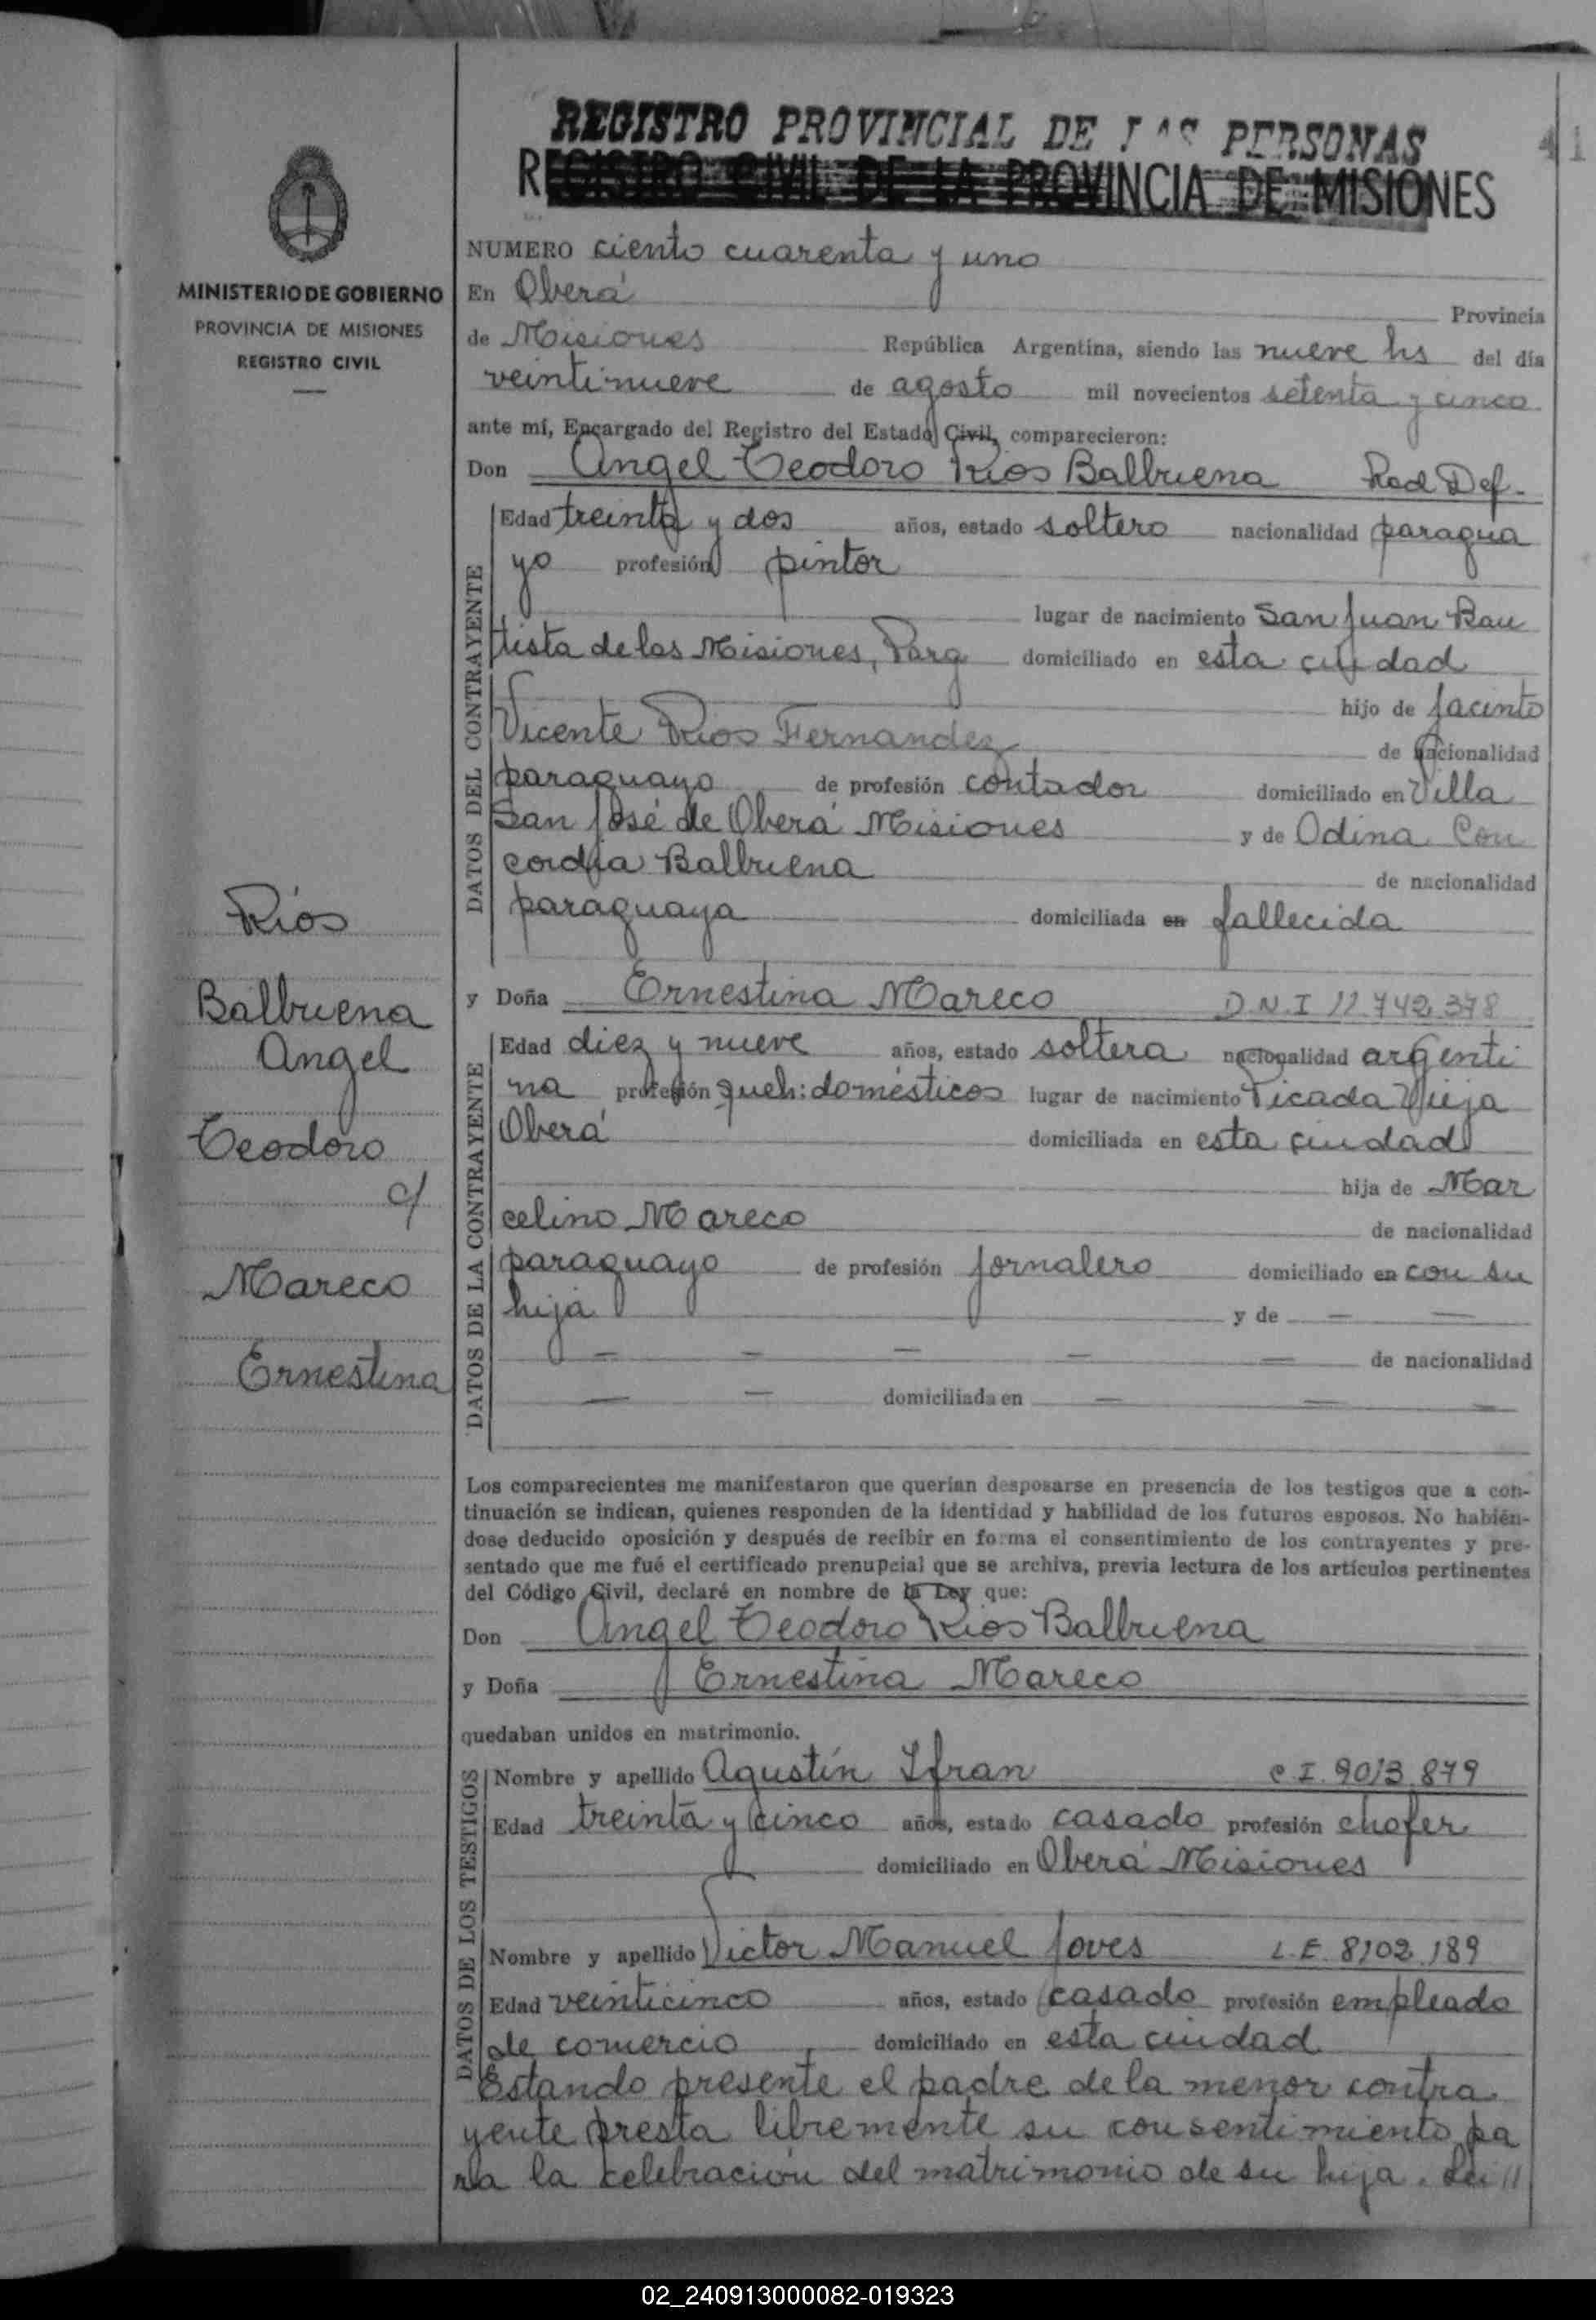 REGISTRO PROVINCIAL DE LAS PERSONAS
REGISTRO CIVIL DE LA PROVINCIA DE MISIONES
41
MINISTERIO DE GOBIERNO
PROVINCIA DE MISIONES
REGISTRO CIVIL
Ríos
Balbuena
Angel
Teodoro
c/
Mareco
Ernestina
NUMERO ciento cuarenta y uno
En Oberá Provincia
de Misiones República Argentina, siendo las nueve hs del día
veintinueve de agosto mil novecientos setenta y cinco
ante mí, Encargado del Registro del Estado Civil, comparecieron:
Don Angel Teodoro Rios Balbuena Rad Def.
DATOS DEL CONTRAYENTE
Edad treinta y dos años, estado soltero nacionalidad paragua
yo profesión pintor
lugar de nacimiento San Juan Bau
tista de las Misiones, Parg domiciliado en esta ciudad
hijo de Jacinto
Vicente Rios Fernandez de nacionalidad
paraguayo de profesión contador domiciliado en Villa
San José de Oberá Misiones y de Odina Con
cordia Balbuena de nacionalidad
paraguaya domiciliada en fallecida
y Doña Ernestina Mareco D.N.I 11.742.378
DATOS DE LA CONTRAYENTE
Edad diez y nueve años, estado soltera nacionalidad argenti
na profesión queh: domésticos lugar de nacimiento Picada Vieja
Oberá domiciliada en esta ciudad
hija de Mar
celino Mareco de nacionalidad
paraguayo de profesión jornalero domiciliado en con su
hija y de — —
— — — — — de nacionalidad
— — domiciliada en — — —
Los comparecientes me manifestaron que querían desposarse en presencia de los testigos que a con-
tinuación se indican, quienes responden de la identidad y habilidad de los futuros esposos. No habién-
dose deducido oposición y después de recibir en forma el consentimiento de los contrayentes y pre-
sentado que me fué el certificado prenupcial que se archiva, previa lectura de los artículos pertinentes
del Código Civil, declaré en nombre de la Ley que:
Don Angel Teodoro Rios Balbuena
y Doña Ernestina Mareco
quedaban unidos en matrimonio.
DATOS DE LOS TESTIGOS
Nombre y apellido Agustín Ifran C.I. 9013.879
Edad treinta y cinco años, estado casado profesión chofer
domiciliado en Oberá Misiones
Nombre y apellido Victor Manuel Joves L.E. 8102.189
Edad veinticinco años, estado casado profesión empleado
de comercio domiciliado en esta ciudad
Estando presente el padre de la menor contra
yente presta libremente su consentimiento pa
ra la celebración del matrimonio de su hija. Lei //
02_240913000082-019323